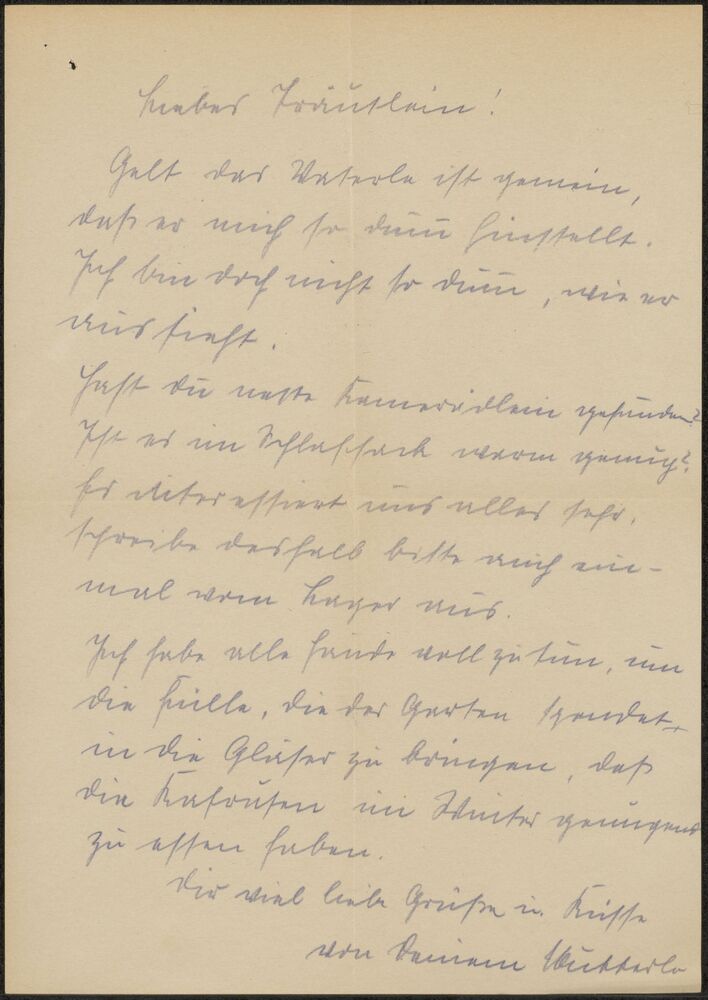 Liebes Träutlein!
Gelt das Vaterle ist gemein,
daß er mich so dum̄ hinstellt.
Ich bin doch nicht so dum̄, wie er
aussieht.
Hast du nette Kameradlein gefunden?
Ist es im Schlafsack warm genug?
Es interessiert uns alles sehr,
schreibe deshalb bitte auch ein-
mal vom Lager aus.
Ich habe alle Hände voll zu tun, um
die Fülle, die der Garten spendet,
in die Gläser zu bringen, daß
die im Winter genügend
zu essen haben.
Dir viel liebe Grüße u. Küsse
von Deinem Mutterle